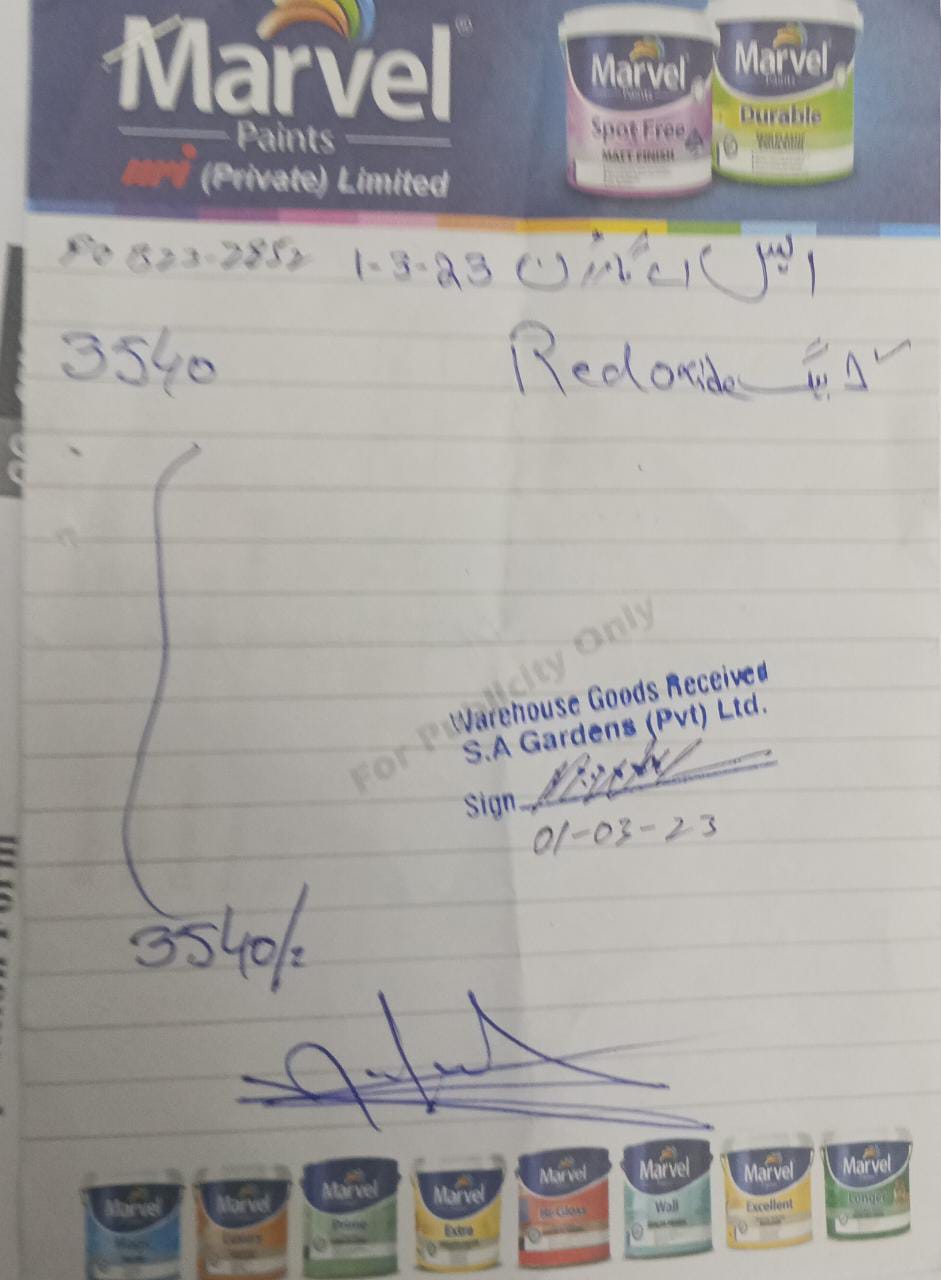 Marvel
Paints
MPI (Private) Limited
Marvel
Paints
Spot Free
MATT FINISH
Marvel
Paints
Durable
PO 823-2852 1-3-23 ایس اے گارڈن
3540 Red oxide
For Publicity Only
Warehouse Goods Received
S.A Gardens (Pvt) Ltd.
Sign
01-03-23
3540/=
Marvel
Marvel
Marvel
Prime
Marvel
Extra
Marvel
Hi-Gloss
Marvel
Wall
Marvel
Excellent
Marvel
Longer